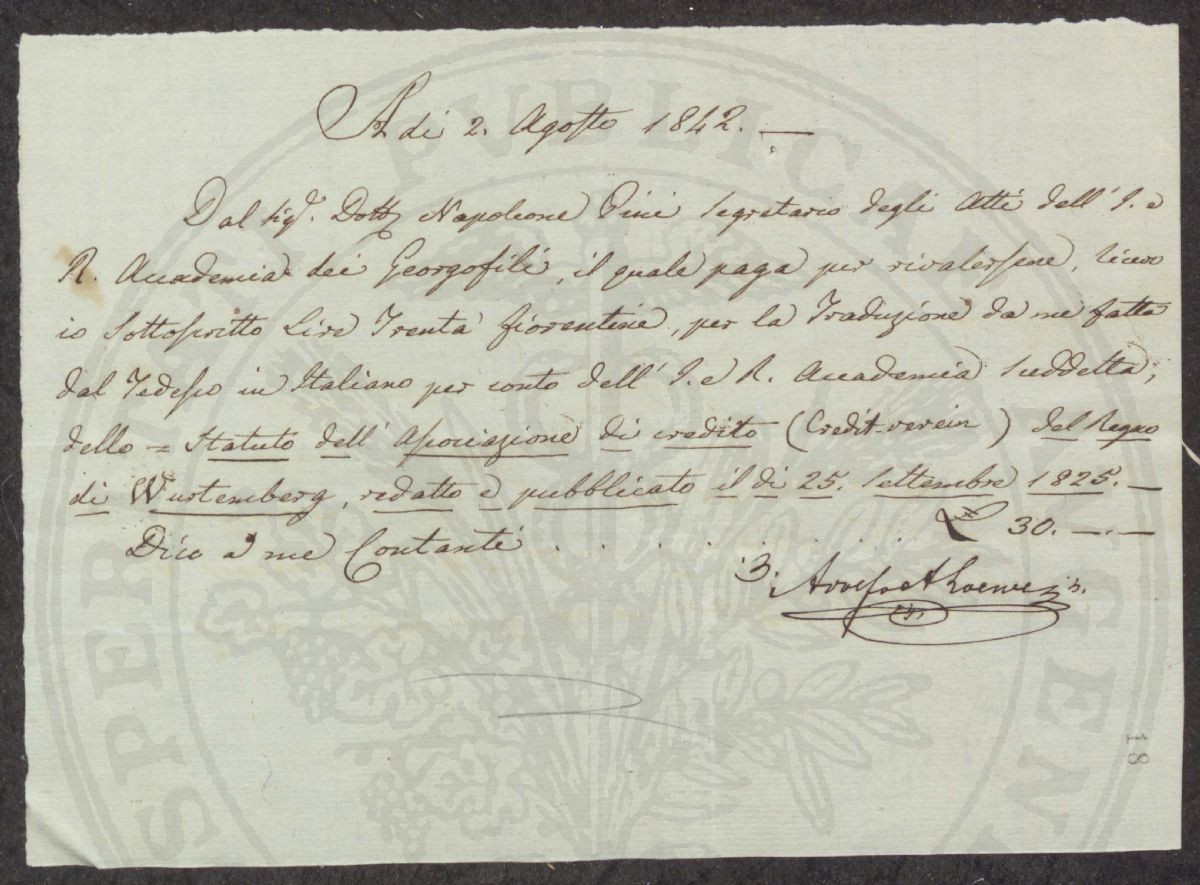 A dì 2. Agosto 1842. —
Dal Sigr. Dottr Napoleone Pini Segretario degli Atti dell' I. e
R. Accademia dei Georgofili, il quale paga per rivalersene, ricevo
io Sottoscritto Lire Trenta fiorentine, per la Traduzione da me fatta
dal Tedesco in Italiano per conto dell' I. e R. Accademia Suddetta,
dello = Statuto dell' Associazione di credito (Credit-verein) del Regno
di Wurtemberg, redatto e pubblicato il dì 25. Settembre 1825. —
Dico a me Contanti . . . . . . . . . £ 30. —.—
Adolfo A Loewe
PUBLICAE
PROSPERITATI AUGENDAE
18